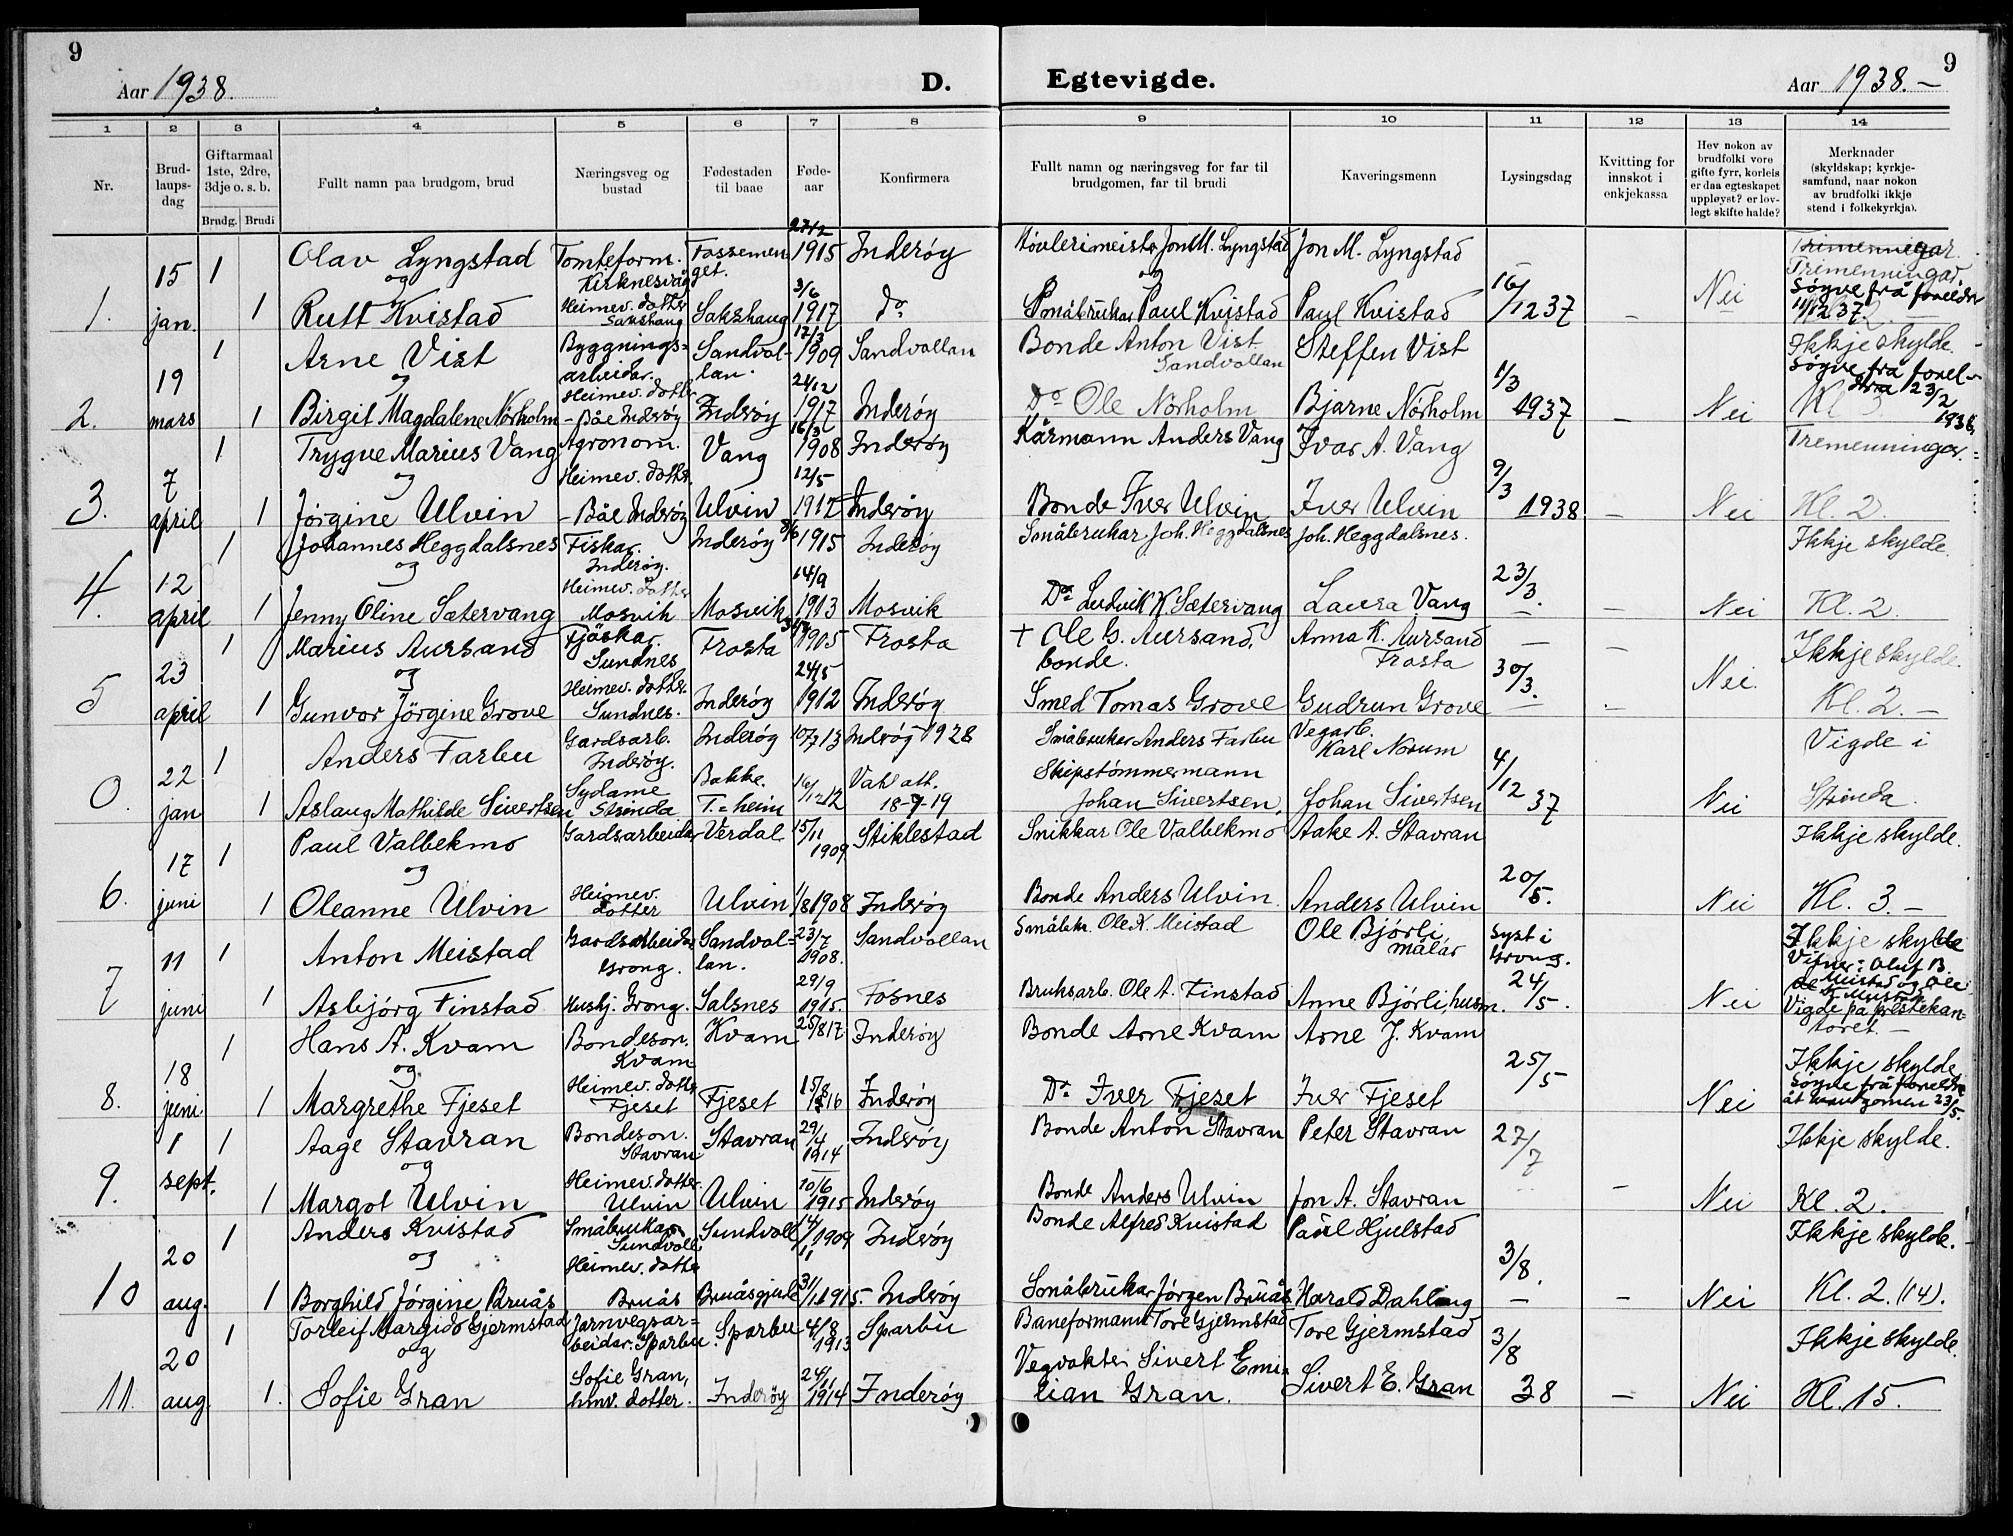 9
Aar 1938.
D.
Egtevigde.
Aar 1938. —
9
1 2 3 4 5 6 7 8 9 10 11 12 13 14
Nr.
Brud-
laups-
dag
Giftarmaal
1ste, 2dre,
3dje o. s. b.
Brudg. Brudi
Fullt namn paa brudgom, brud
Næringsveg og
bustad
Fødestaden
til baae
Føde-
aar
Konfirmera
Fullt namn og næringsveg for far til
brudgomen, far til brudi
Kaveringsmenn
Lysingsdag
Kvitting for
innskot i
enkjekassa
Hev nokon av
brudfolki vore
gifte fyrr, korleis
er daa egteskapet
uppløyst? er lov-
legt skifte halde?
Merknader
(skyldskap; kyrkje-
samfund, naar nokon
av brudfolki ikkje
stend i folkekyrkja).
1. 15 jan. 1 Olav Lyngstad Tomteform. 27/12 1915 Inderøy Jon M. Lyngstad Jon M. Lyngstad
og
1 Rutt Kvistad Heimev. dotter Sakshaug Sakshaug 3/6 1917 Do Småbrukar Paul Kvistad Paul Kvistad 16/12 37 — Nei Trimenningar. Søgne frå foreldr 11/12 37.
2. 19 mars 1 Arne Vist Byggnings- arbeidar. Sandvol- lan. 12/3 1909 Sandvollan Bonde Anton Vist Sandvollan Steffen Vist Ikkje skylde.
og
1 Birgit Magdalene Nørholm Heimev. dotter – Båe Inderøy Inderøy 24/12 1917 Inderøy Do Ole Nørholm Bjarne Nørholm 1/3 1937 — Nei
3. 7 april 1 Trygve Marius Vang Agronom. Vang 16/3 1908 Inderøy Kårmann Anders Vang Ivar A. Vang Tremenninger.
og
1 Jørgine Ulvin Heimev. dotter. – Båe Inderøy Ulvin 12/5 1917 Inderøy Bonde Iver Ulvin Iver Ulvin 9/3 1938 — Nei Kl. 2.
4. 12 april 1 Johannes Heggdalsnes Fiskar. Inderøy. Inderøy 1915 Inderøy Småbrukar Joh. Heggdalsnes Joh. Heggdalsnes. Ikkje skylde.
og
1 Jenny Oline Sætervang Heimev. dotter Mosvik Mosvik 14/9 1913 Mosvik Do Ludvik K. Sætervang Laura Vang 23/3. — Nei Kl. 2.
5 23 april 1 Marius Aursand Sundnes Frosta 1905 Frosta † Ole G. Aursand. bonde. Anna K. Aursand Frosta — Ikkje skylde.
og
1 Gunvor Jörgine Grove Heimev. dotter. Sundnes. Inderøy 24/5 1912 Inderøy Smed Tomas Grove Gudrun Grove 30/3. — Nei. Kl. 2. —
0. 22 jan 1 Anders Farbu Gardsarb. Inderøy. Inderøy 10/7 13 Inderøy 1928 Småbrukar Anders Farbu Vegarb. Karl Norum Vigde i
1 Aslaug Mathilde Sivertsen Sydame Strinda Bakke. T.=heim 16/12 12 Skipstømmermann Johan Sivertsen, Johan Sivertsen 4/12 37 Nei Strinda.
6. 17 juni 1 Paul Valbekmo Gardsarbeidar Verdal 15/11 1909 Stiklestad Snikkar Ole Valbekmo Aake A. Stavran Ikkje skylde.
og
1 Oleanne Ulvin Heimev. dotter Ulvin 1/8 1908 Inderøy Bonde Anders Ulvin. Anders Ulvin 20/5. Nei Kl. 3. —
7 11 juni 1 Anton Meistad Gardsarbeidar Grong. Sandvol= lan. 23/7 1908. Sandvollan Småbr. Ole K. Meistad Ole Bjørli målar Lyst i Grong. Ikkje skylde
1 Asbjørg Finstad Grong. Salsnes 29/9 1915. Fosnes Bruksarb. Ole A. Finstad Anne Bjørli, husm. 24/5. Nei Vitner: Oluf B. Meistad og Ole Vigde på prestekan- toret. —
8. 18 juni 1 Hans A. Kvam Bondeson. Kvam Kvam 25/8 17 Inderøy Bonde Arne Kvam Arne J. Kvam Ikkje skylde
og
1 Margrethe Fjeset Heimev. dotter Fjeset Fjeset 15/8 16 Inderøy Do Iver Fjeset Iver Fjeset 25/5 Nei Søgne frå foreldre 23/5.
9. 1 sept. 1 Aage Stavran Bondeson. Stavran Stavran 29/4 1914 Inderøy Bonde Anton Stavran Peter Stavran 27/7 Ikkje skylde.
og
1 Margot Ulvin Heimev. dotter. Ulvin Ulvin 10/6 1915 Inderøy Bonde Anders Ulvin Jon A. Stavran — Nei Kl. 2.
10 20 aug. 1 Anders Kvistad Småbrukar Sundvoll Sundvoll 14/11 1909 Inderøy Bonde Alfred Kvistad Paul Hjulstad Ikkje skylde.
og
1 Borghild Jørgine Bruås Heimev. dotter Bruås 31/1 1915. Inderøy Småbrukar Jørgen Bruås Harald Dahling 3/8. — Nei Kl. 2. (14).
11. 20 aug. 1 Torleif Margido Gjermstad Jarnvegsar= beidar. Sparbu. Sparbu 4/8 1913 Sparbu Baneformann Tore Gjermstad Tore Gjermstad Ikkje skylde.
og
1. Sofie Gran Sofie Gran, hmv. dotter. Inderøy 24/1 1914 Inderøy Vegvakter Sivert Emi- lian Gran. Sivert E. Gran 3/8 38 — Nei Kl. 15.